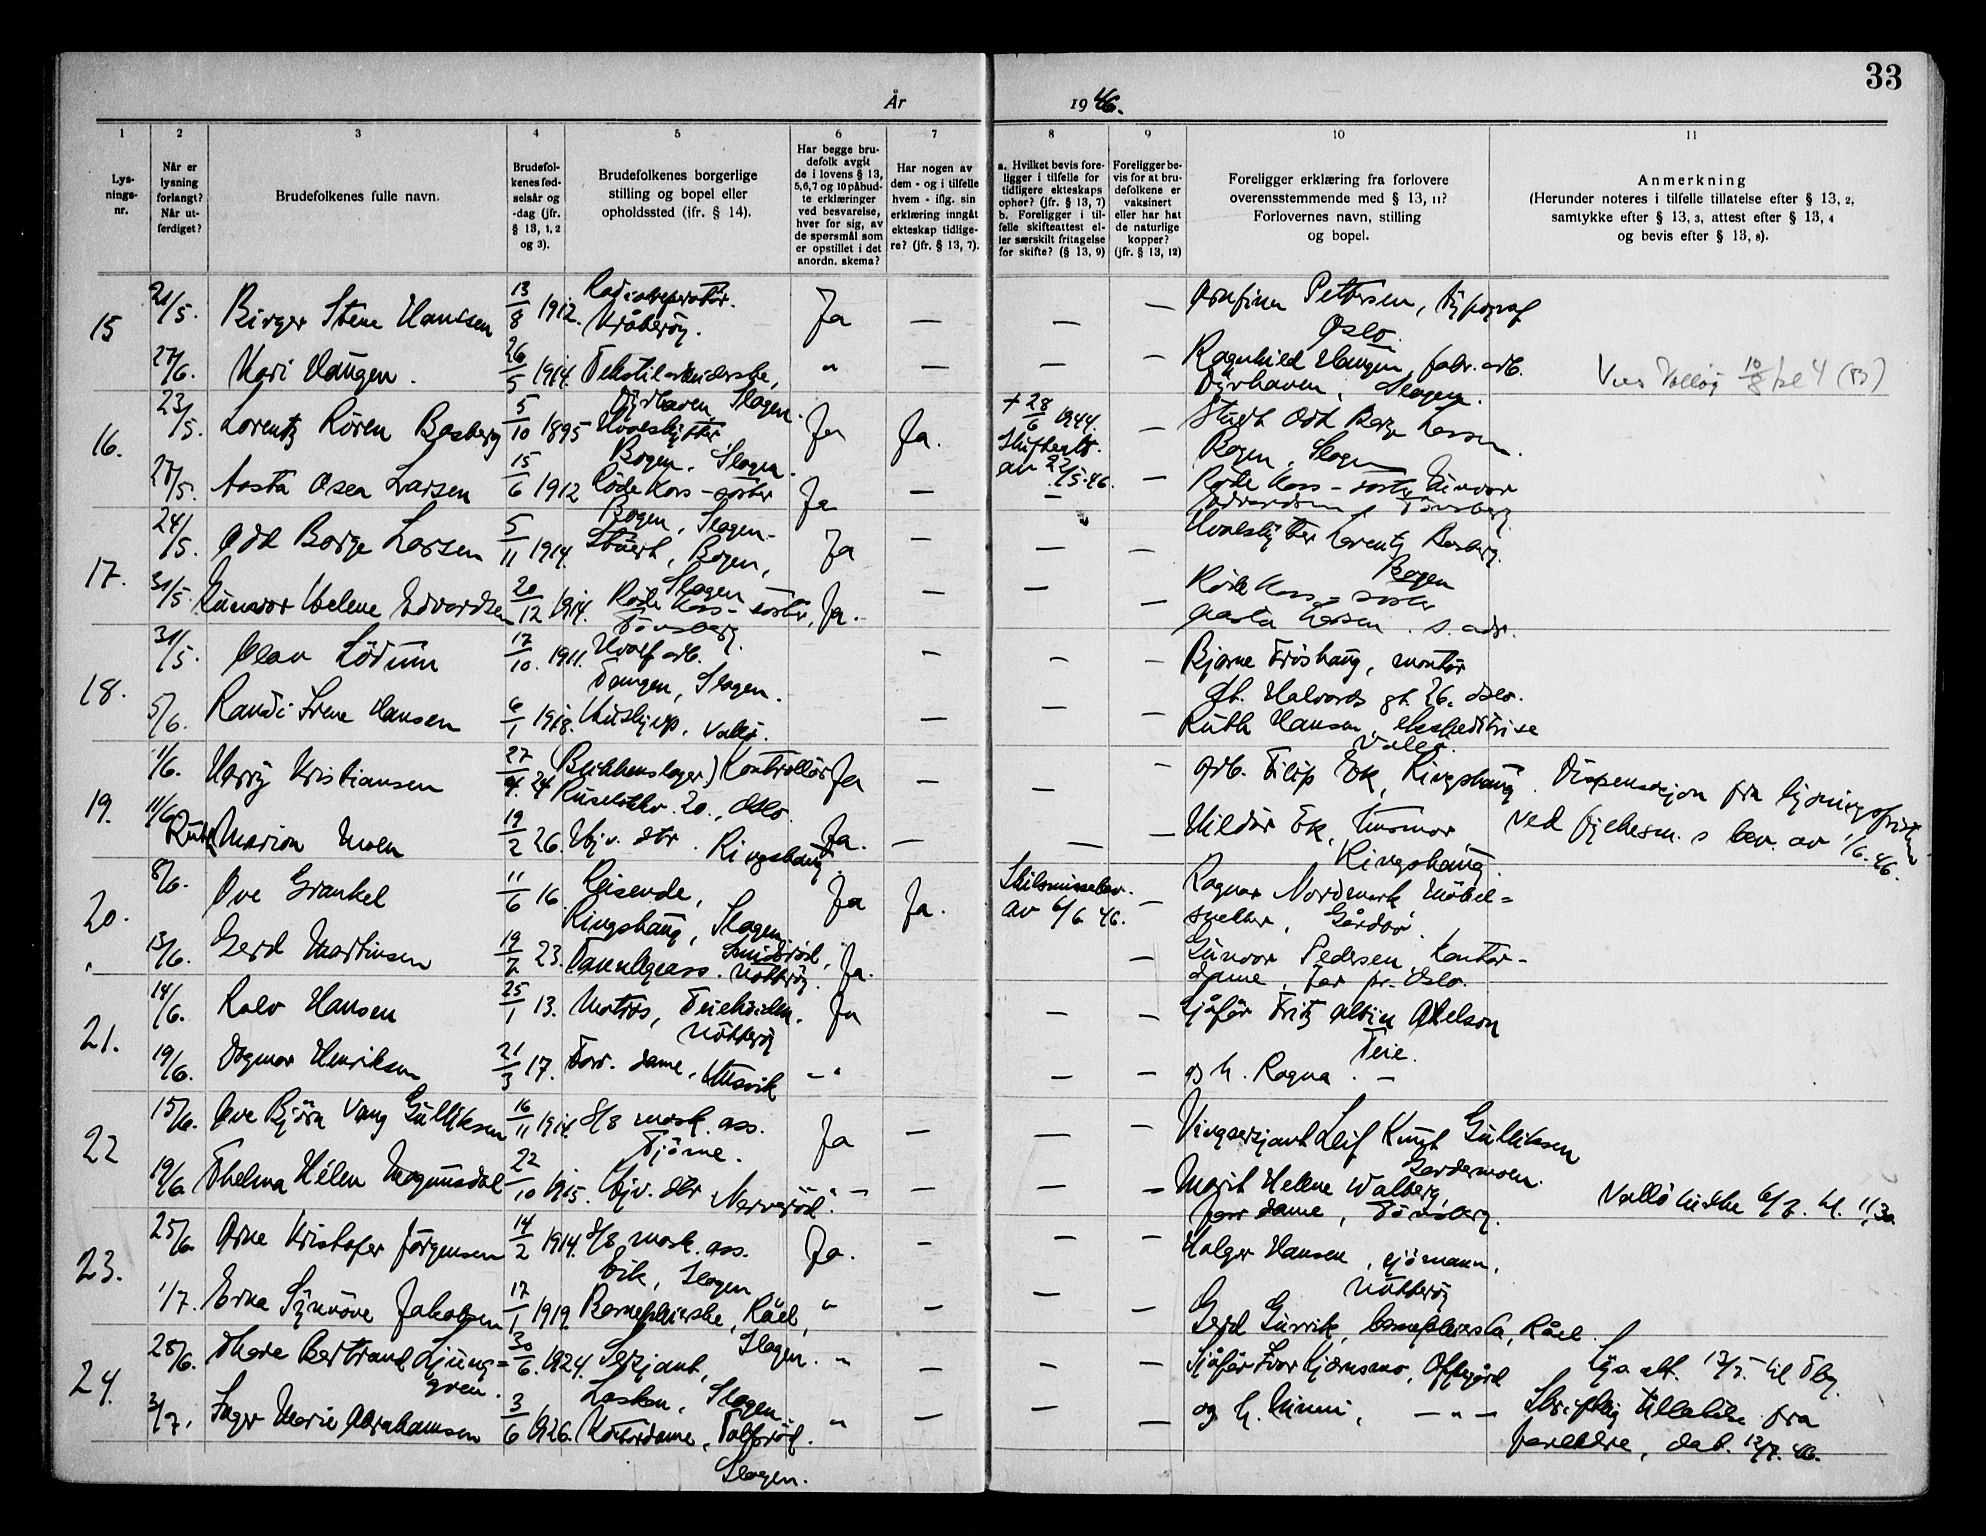 33
År 1946.
1 2 3 4 5 6 7 8 9 10 11
Lysningsnr.
Når er lysning forlangt? Når utferdiget?
Brudefolkenes fulle navn.
Brudefolkenes fødselsår og -dag (jfr. § 13, 1, 2 og 3).
Brudefolkenes borgerlige stilling og bopel eller opholdssted (jfr. § 14).
Har begge brudefolk avgit de i lovens § 13, 5,6,7 og 10 påbudte erklæringer ved besvarelse, hver for sig, av de spørsmål som er opstillet i det anordn. skema?
Har nogen av dem - og i tilfelle hvem - iflg. sin erklæring inngåt ekteskap tidligere? (jfr. § 13, 7).
a. Hvilket bevis foreligger i tilfelle for tidligere ekteskaps ophør? (jfr. § 13, 7)
b. Foreligger i tilfelle skifteattest eller særskilt fritagelse for skifte? (§ 13, 9)
Foreligger bevis for at brudefolkene er vaksinert eller har hat de naturlige kopper? (jfr. § 13, 12)
Foreligger erklæring fra forlovere overensstemmende med § 13, 11? Forlovernes navn, stilling og bopel.
Anmerkning
(Herunder noteres i tilfelle tillatelse efter § 13, 2, samtykke efter § 13, 3, attest efter § 13, 4 og bevis efter § 13, 8).
15 21/5. Birger Stene Hanssen 13/8 1912. Ja — — — Arnfinn Pettersen, typograf
Oslo.
27/6. Kari Haugen. 26/5 1914. Tekstilarbeiderske, " — — — Ragnhild Haugen, fabr. arb.
Dyrhaven, Slagen.
16. 23/5. Lorentz Køren Basberg 5/10 1895 Hvalskytter Ja Ja. + 28/6 1944. — Odd Borge Larsen
Bogen, Slagen. Skifteatt. av 22/5.46. Bogen, Slagen
27/5. Aasta Osea Larsen 15/6 1912 Røde Kors-søster Ja — — — Røde Kors-søster Gunvor
Bogen, Slagen. Edvardsen, Tønsberg
17. 24/5. Odd Borge Larsen 5/11 1914. Stuert, Bogen, Ja — — — Hvalskytter Lorentz Basberg.
Slagen Bogen
31/5. Gunvor Helene Edvardsen 20/12 1914. Røde Kors-søster, Ja. — — — Røde Kors-søster
Tønsberg. Aasta Larsen. s. adr.
18. 31/5. Olav Lødum 17/10. 1911. Hvalf. arb. — — — Bjarne Frøshaug, montør
Tangen, Slagen. St. Halvards gt. 26. Oslo.
5/6. Randi Irene Hansen 6/1 1918. Hushjelp, Vallø. — — — Ruth Hansen, ekspeditrise
Vallø.
19. 1/6. Harry Kristiansen 27/4. 24 Kontrollør Ja — — — Arb. Filip Ek, Ringshaug. Dispensasjon fra lysningsfristen
20., Oslo.
11/6. Ruth Marion Moen 19/2 26. Hjv. dtr. Ringshaug. Ja. — — — Hildur Ek, husmor ved fylkesm. s bev. av 1/6.46.
Ringshaug.
20. 8/6. Ove Grankel 11/6 16. Reisende, Ja Ja. Skilsmissebev. — Ragnar Nordmark Møbel-
Ringshaug, Slagen av 6/6 46. snekker,
13/6. Gerd Martinsen 19/2 23. Tannlegeass. Smidsrød, Nøtterøy. Ja. — Gunvor Pedersen, Kontor-
dame, Oslo.
21. 14/6. Rolv Hansen 25/1 13. Matros, Teiehøiden. Ja — — Sjåfør Fritz Albin Axelson
Nøtterøy Teie.
19/6. Dagmar Henriksen 21/3 17. Forr. dame, Husvik — " — — og h. Ragna. —
22 15/6. Ove Bjørn Vang Gulliksen 16/11 1914. d/s mask. ass. Ja — — — Vingsersjant Leif Knut Gulliksen
Tjøme. Gardermoen.
19/6. Thelma Hélen Magnusdal 22/10 1915. Hjv. dtr. Narverød. " — — — — Marit Helene Walberg,
forr dame, Tønsberg. Vallø kirke 6/7. kl. 11,30
23. 25/6. Arne Kristofer Jørgensen 14/2 1914. d/s mask. ass. Ja. — — — Holger Hansen, sjømann.
Vik, Slagen Nøtterøy
1/7. Erna Synnøve Jakobsen 17/1 1919. Barnepleierske, Råel, " — — — Gerd Gurrik, barnepleierske, Råel.
Slagen.
24. 28/6. Thore Bertrand Ljung= 30/6. 1924. Sersjant, " — — — Sjåfør Ivar Kjærnsmo, Oppegård Lys. att. 12/7. til Tbg.
gren. Slagen
3/7. Inger Marie Abrahamsen 3/6 1926. Kontordame, Tolfsrød. " — — — og h. Mimi, — " — Skriftlig tillatelse fra
Slagen. foreldre, dat. 12/7. 46.